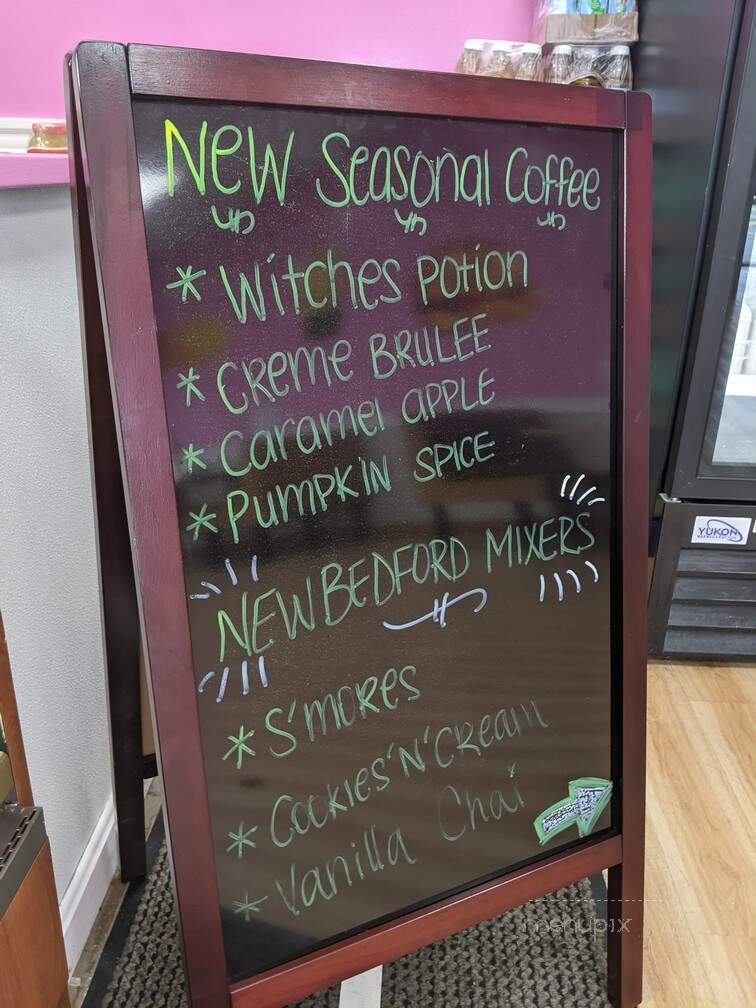 New Seasonal Coffee
* Witches Potion
* Creme BRULEE
* Caramel APPLE
* PUMPKIN SPICE
NEW BEDFORD MIXERS
* S'mores
* Cookies'N'Cream
* Vanilla Chai
YUKON
menupix